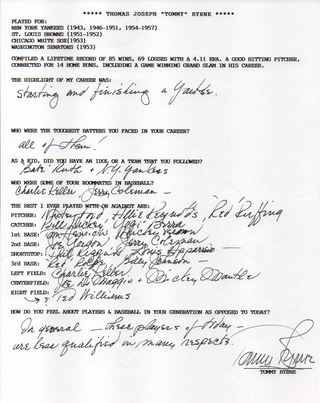 ***** THOMAS JOSEPH "TOMMY" BYRNE *****
PLAYED FOR:
NEW YORK YANKEES (1943, 1946-1951, 1954-1957)
ST. LOUIS BROWNS (1951-1952)
CHICAGO WHITE SOX(1953)
WASHINGTON SENATORS (1953)
COMPILED A LIFETIME RECORD OF 85 WINS, 69 LOSSES WITH A 4.11 ERA. A GOOD HITTING PITCHER,
CONNECTED FOR 14 HOME RUNS, INCLUDING A GAME WINNING GRAND SLAM IN HIS CAREER.
THE HIGHLIGHT OF MY CAREER WAS:
Starting and finishing a Yankee.
WHO WERE THE TOUGHEST BATTERS YOU FACED IN YOUR CAREER?
All of them!
AS A KID, DID YOU HAVE AN IDOL OR A TEAM THAT YOU FOLLOWED?
Babe Ruth & N.Y. Yankees
WHO WERE SOME OF YOUR ROOMMATES IN BASEBALL?
Charlie Keller, Jerry Coleman —
THE BEST I EVER PLAYED WITH OR AGAINST ARE:
PITCHER: Whitey Ford, Allie Reynolds, Red Ruffing
CATCHER: Bill Dickey, Yogi Berra
1st BASE: Tom Henrich, Mickey Vernon
2nd BASE: Joe Gordon, Jerry Coleman —
SHORTSTOP: Phil Rizzuto & Louis Apparicio —
3rd BASE: Red Rolfe, Billy Johnson —
LEFT FIELD: Charlie Keller
CENTERFIELD: Joe DiMaggio & Mickey Mantle
RIGHT FIELD:
Ted Williams
HOW DO YOU FEEL ABOUT PLAYERS & BASEBALL IN YOUR GENERATION AS OPPOSED TO TODAY?
In general — these players of today —
are less qualified in many respects.
Tommy Byrne
TOMMY BYRNE